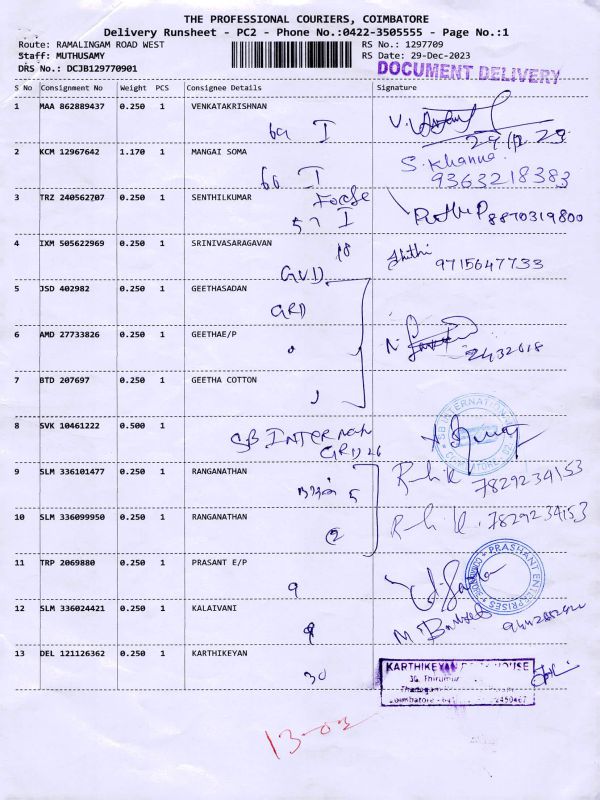 THE PROFESSIONAL COURIERS, COIMBATORE
Delivery Runsheet - PC2 - Phone No.:0422-3505555 - Page No.:1
Route: RAMALINGAM ROAD WEST RS No.: 1297709
Staff: MUTHUSAMY RS Date: 29-Dec-2023
DRS No.: DCJB129770901 DOCUMENT DELIVERY
S No Consignment No Weight PCS Consignee Details Signature
1 MAA 862889437 0.250 1 VENKATAKRISHNAN
69 I 29/12/23
2 KCM 12967642 1.170 1 MANGAI SOMA S. Khanna
66 I 9363218383
3 TRZ 240562707 0.250 1 SENTHILKUMAR
57 I 8870319800
4 IXM 505622969 0.250 1 SRINIVASARAGAVAN 18
GVD 9715647733
5 JSD 402982 0.250 1 GEETHASADAN
GRD
6 AMD 27733826 0.250 1 GEETHAE/P
2432618
7 BTD 207697 0.250 1 GEETHA COTTON
8 SVK 10461222 0.500 1 SB INTERNATIONAL
SB INTERNAT
GRD 26
9 SLM 336101477 0.250 1 RANGANATHAN
5 7829234153
10 SLM 336099950 0.250 1 RANGANATHAN
2 7829234153
11 TRP 2069880 0.250 1 PRASANT E/P
9 PRASHANT ENTERPRISES
12 SLM 336024421 0.250 1 KALAIVANI
9
13 DEL 121126362 0.250 1 KARTHIKEYAN KARTHIKEYAN HOUSE
30
13-02